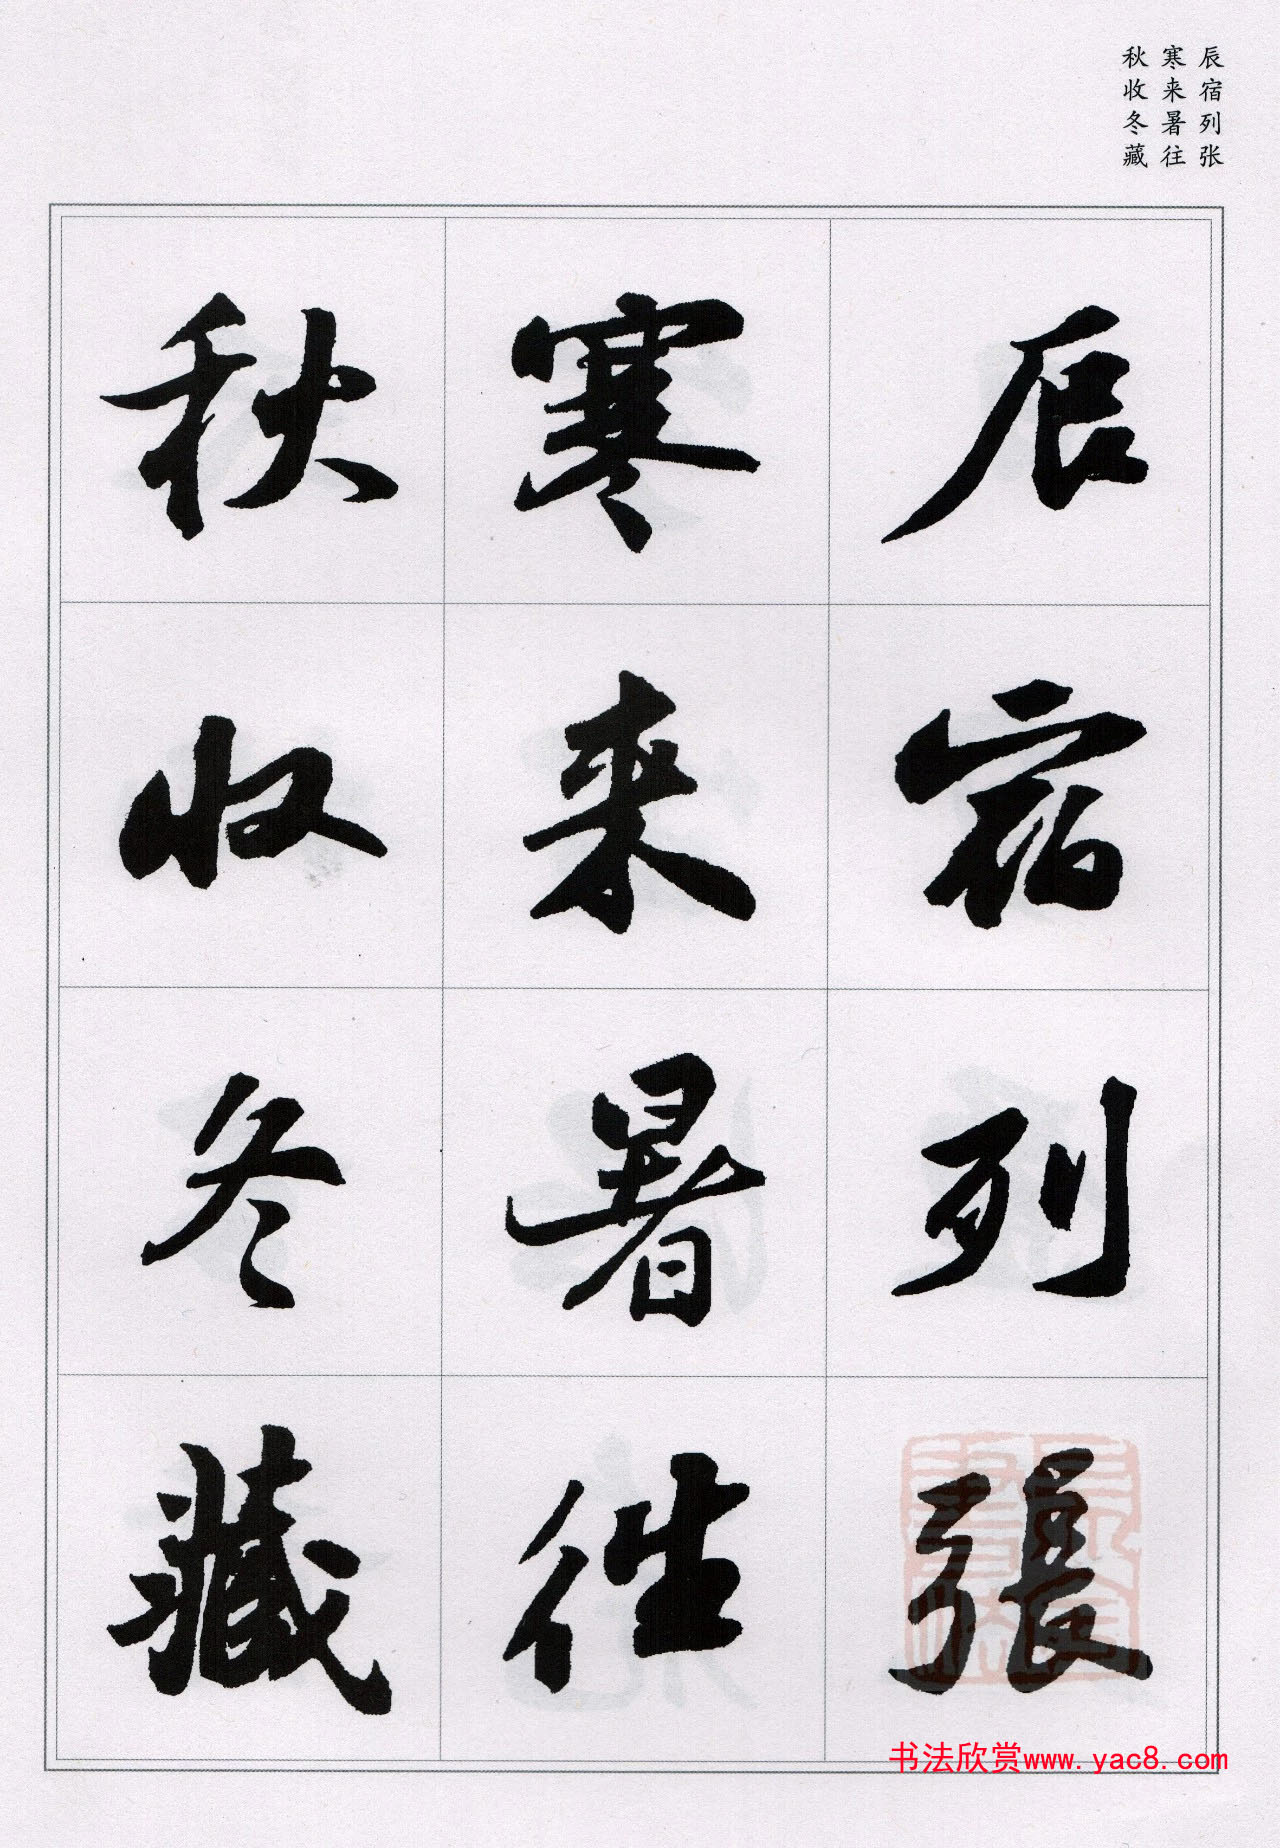 辰宿列张
寒来暑往
秋收冬藏
辰宿列張
寒来暑往
秋收冬藏
书法欣赏www.yac8.com